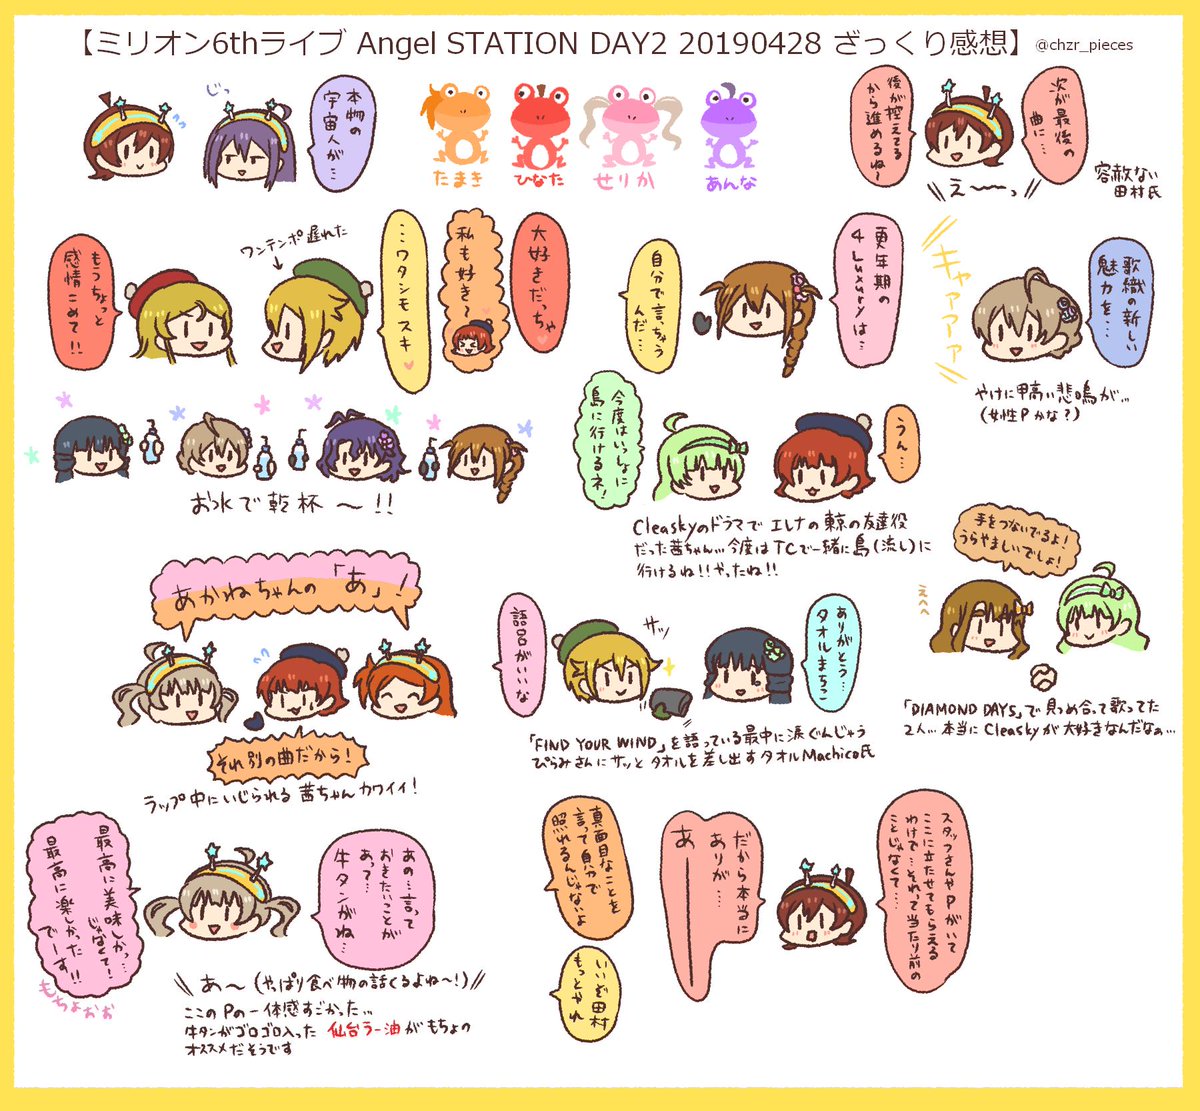 【ミリオン6thライブ Angel STATION DAY2 20190428 ざっくり感想】 @chzr_pieces
じっ
本物の
宇宙人が…
たまき
ひなた
せりか
あんな
次が最後の
曲に…
後が控えてる
から進めるね〜
え〜〜っ
容赦ない
田村氏
大好きだっちゃ
私も好き〜
…ワタシモスキ
ワンテンポ遅れた
もうちょっと
感情こめて!!
更年期の
4 Luxuryは…
自分で言っちゃう
んだ…
歌織の新しい
魅力を…
キャァァァァ
やけに甲高い悲鳴が…
(女性Pかな?)
お水で乾杯〜!!
うん…
今度はいっしょに
島に行けるネ!
Cleaskyのドラマでエレナの東京の友達役
だった茜ちゃん…今度はTCで一緒に島(流し)に
行けるね!!やったね!!
手をつないでるよ!
うらやましいでしょ!
えへへ
「DIAMOND DAYS」で見つめ合って歌ってた
2人…本当にCleaskyが大好きなんだなぁ…
あかねちゃんの「あ」!
それ別の曲だから!
ラップ中にいじられる茜ちゃんカワイイ!
ありがとう…
タオルまちこ
サッ
語呂がいいな
「FIND YOUR WIND」を語っている最中に涙ぐんじゃう
ぴらみさんにサッとタオルを差し出すタオルMachico氏
あの…言って
おきたいことが
あって…
牛タンがね…
最高に美味しかっ…
じゃなくて!
最高に楽しかった
でーす!!
もちょおお
あ〜(やっぱり食べ物の話くるよね〜!)
ここのPの一体感すごかった…
牛タンがゴロゴロ入った仙台ラー油がもちょの
オススメだそうです
スタッフさんやPがいて
ここに立たせてもらえる
わけで…それって当たり前の
ことじゃなくて…
だから本当に
ありが…
あ――
真面目なことを
言って自分で
照れるんじゃないよ
いいぞ田村
もっとやれ